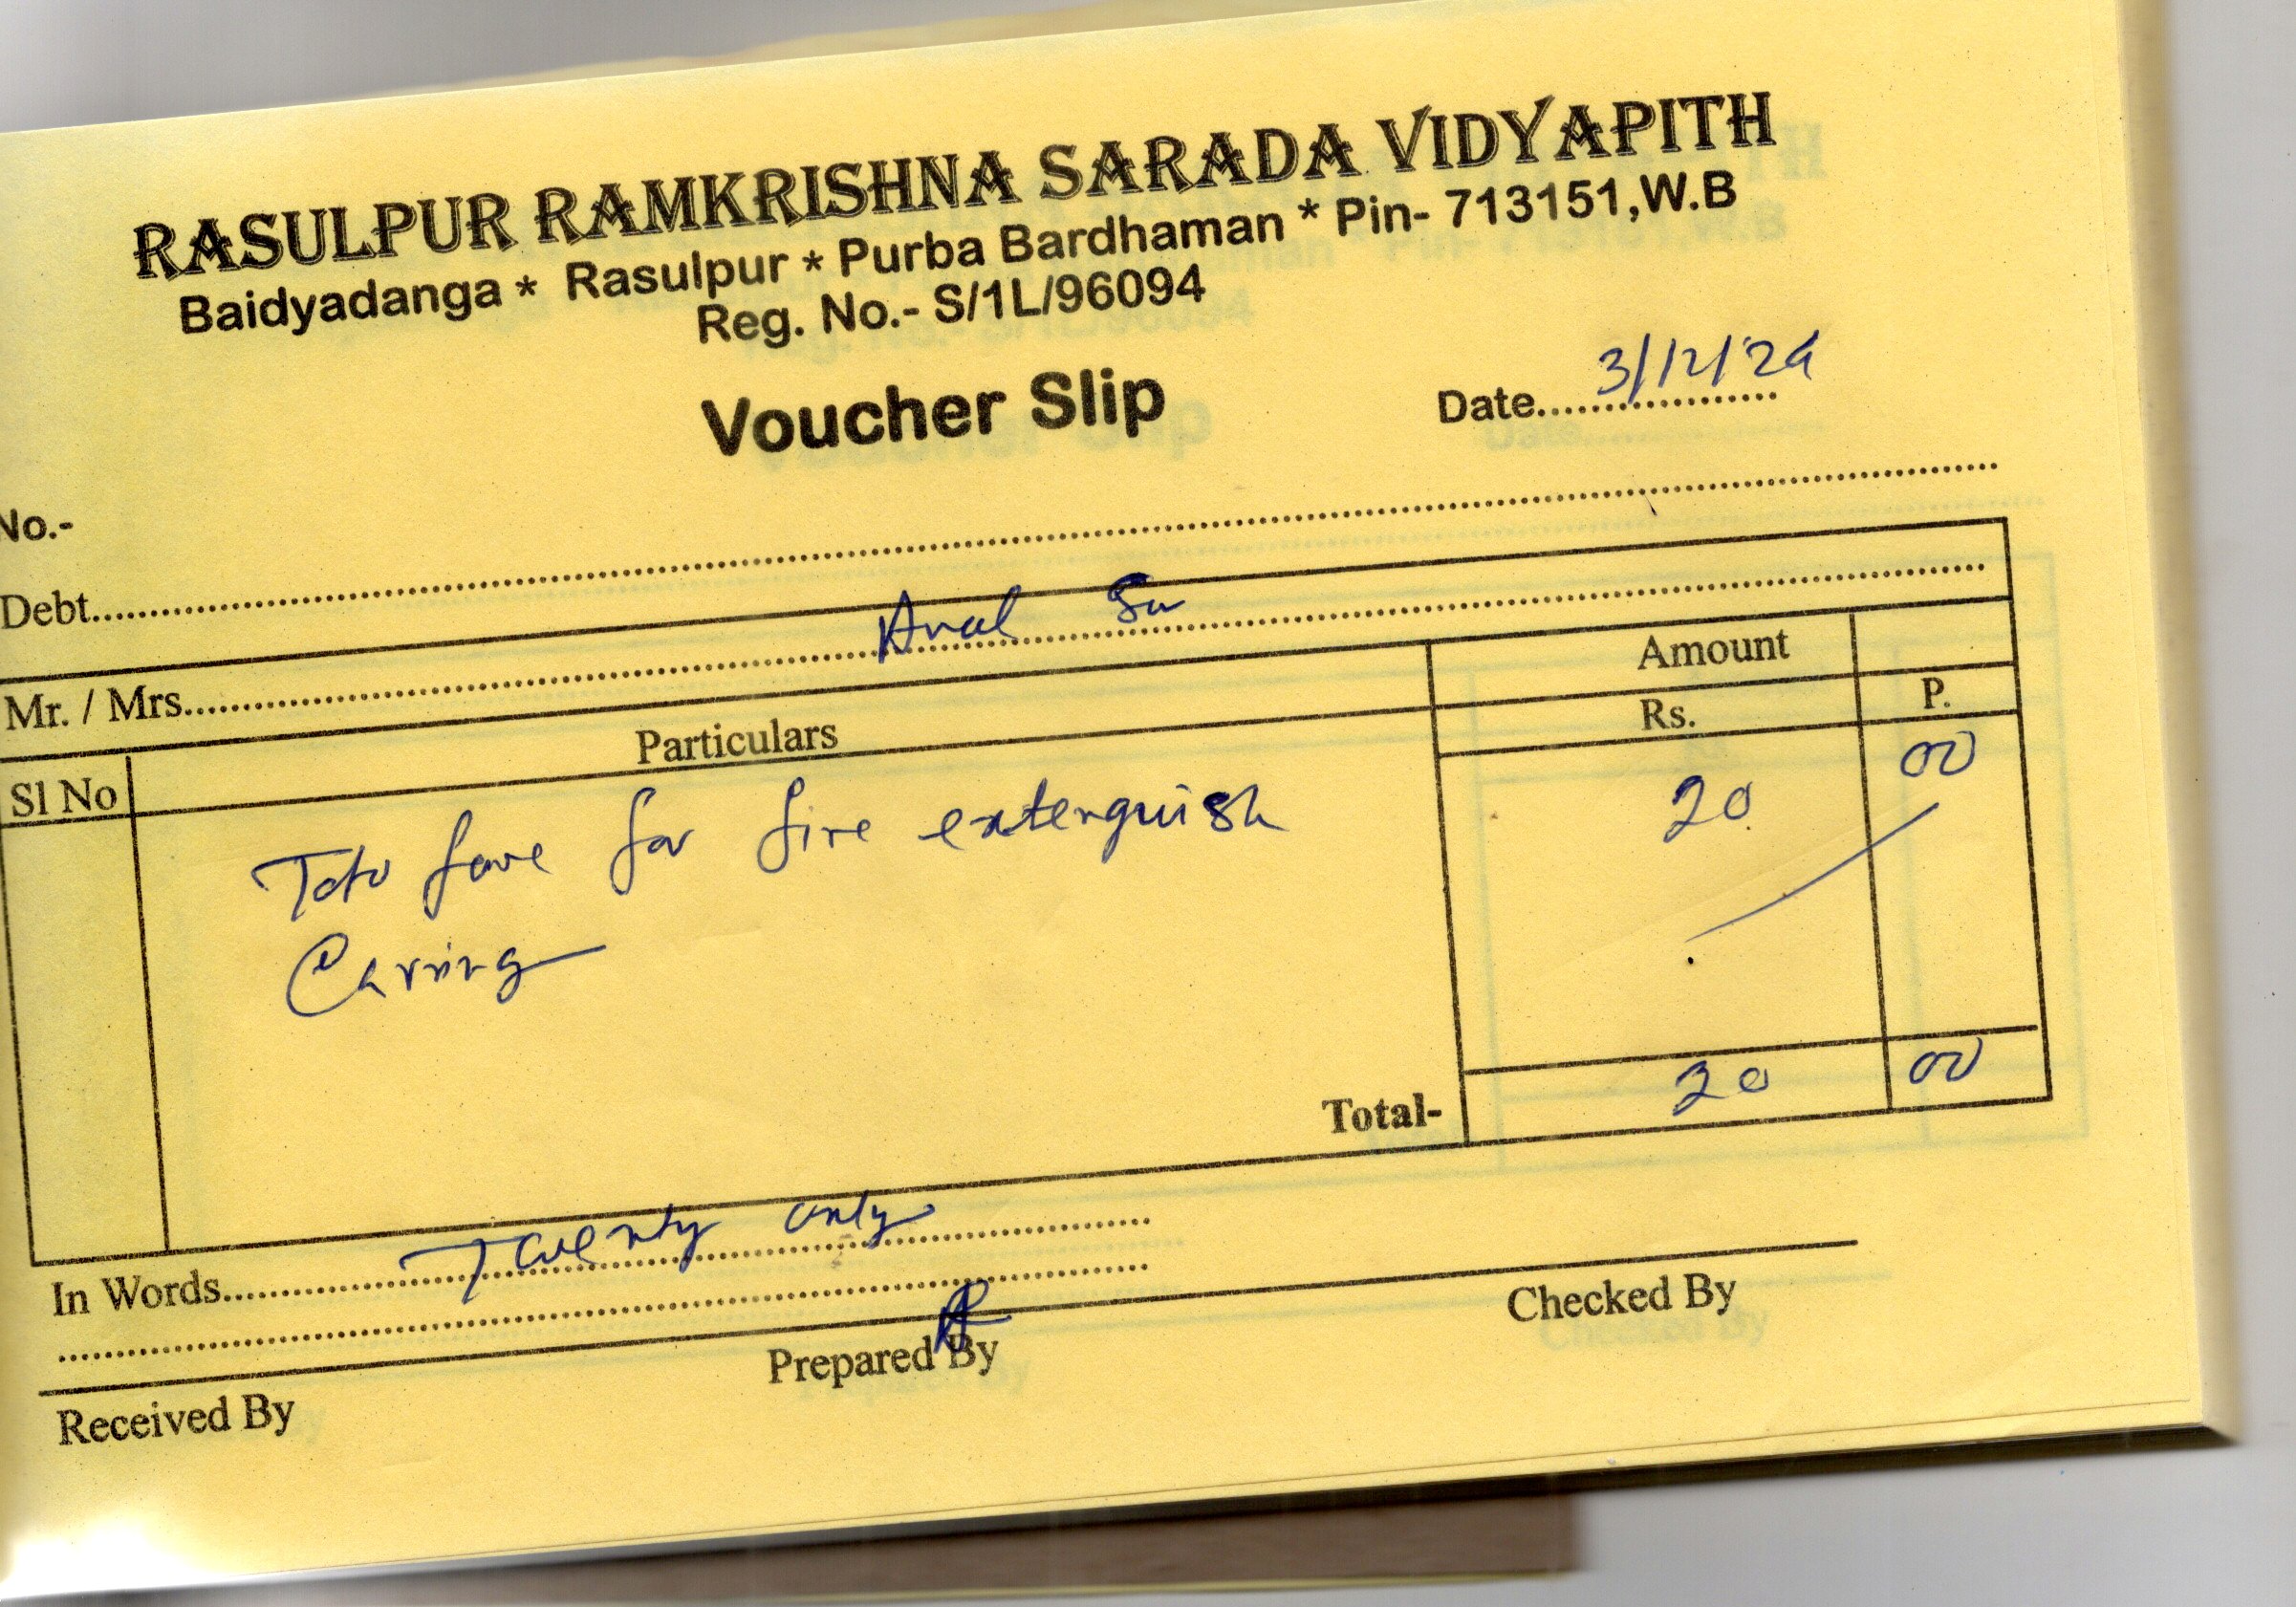 RASULPUR RAMKRISHNA SARADA VIDYAPITH
Baidyadanga * Rasulpur * Purba Bardhaman * Pin- 713151,W.B
Reg. No.- S/1L/96094
Voucher Slip
Date.................. 3/12/24
No.-
Debt..........
Mr. / Mrs..........
Sl No Particulars Amount
Rs. P.
Toto fare for fire extenguish 20 00
Carring
Total- 20 00
In Words.......... Twenty only
Received By Prepared By Checked By